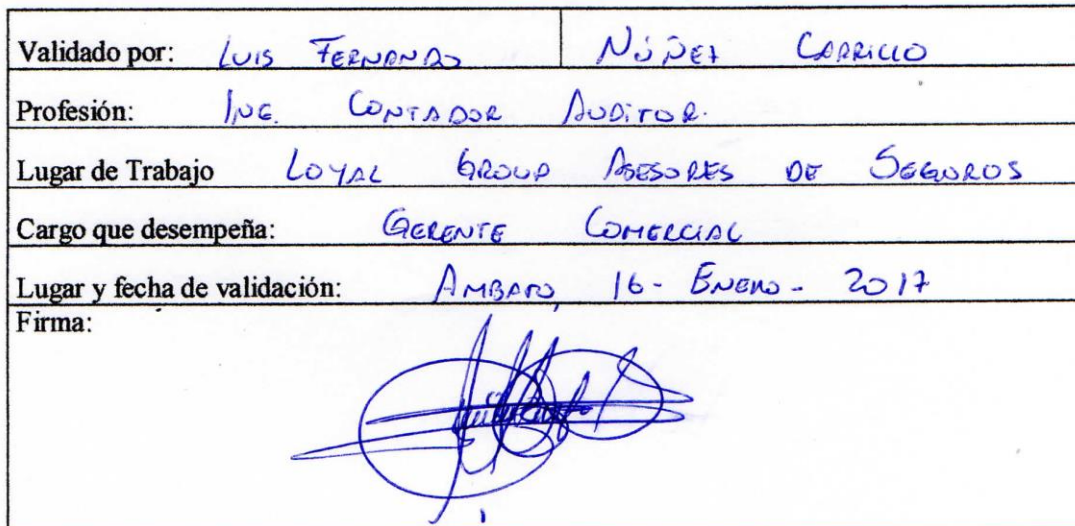 Validado por: LUIS FERNANDO NÚÑEZ CARRILLO
Profesión: ING. CONTADOR AUDITOR.
Lugar de Trabajo LOYAL GROUP ASESORES DE SEGUROS
Cargo que desempeña: GERENTE COMERCIAL
Lugar y fecha de validación: AMBATO, 16 - ENERO - 2017
Firma: